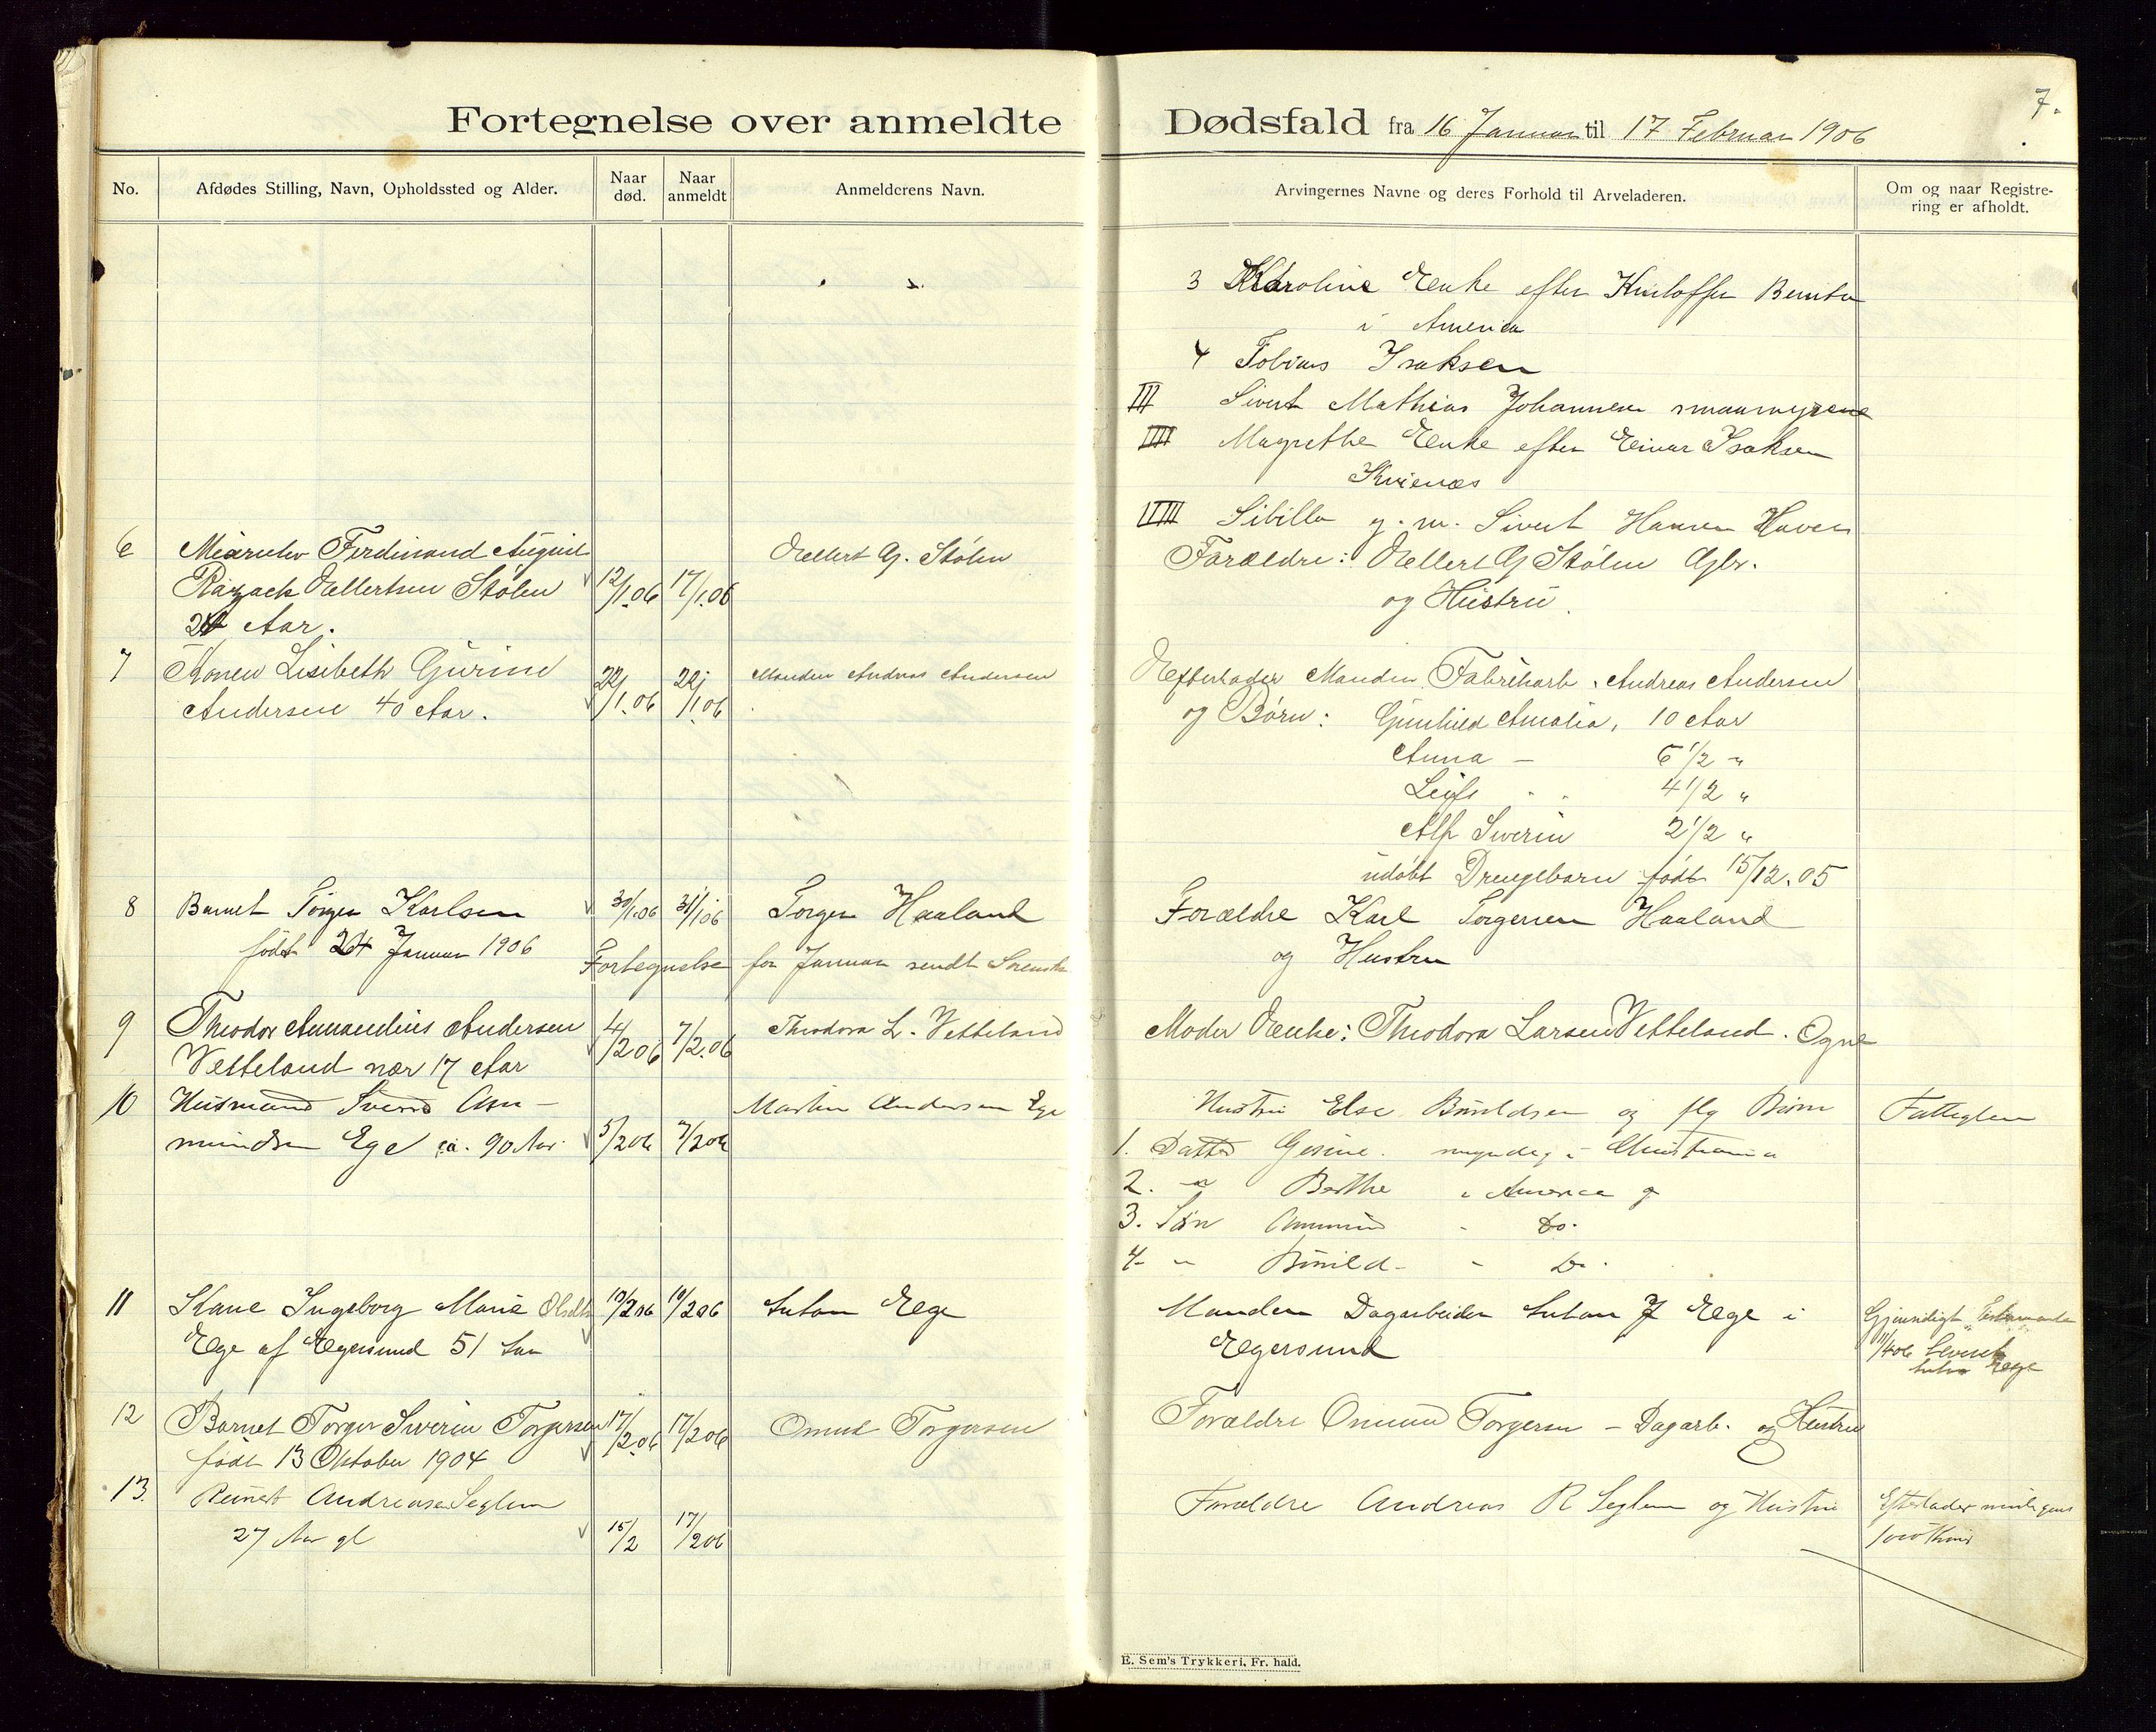 7.
Fortegnelse over anmeldte Dødsfald fra 16 Januar til 17 Februar 1906
No.
Afdødes Stilling, Navn, Opholdssted og Alder.
Naar død.
Naar anmeldt
Anmelderens Navn.
Arvingernes Navne og deres Forhold til Arveladeren.
Om og naar Registrering er afholdt.
3 Karoline Enke efter
i America
4 Tobias Isaksen
III Sivert Mathias Johannesen
IIII Magrethe Enke efter Einar Isaksen
IIIII Sibille g. m. Sivert Hansen Haven
6 Ferdinand August
Ellertsen Stølen 12/1.06 17/1.06 Ellert G. Stølen
Aar.
Forældre: Ellert G Stølen Gbr.
og Hustru.
7 Konen Lisebeth Gurine
Andersen 40 Aar. 22/1.06 22/1.06 Manden Andreas Andersen
Efterlader Manden Fabrikarb. Andreas Andersen
og Børn: Gunhild Amalia, 10 Aar
Anna — 6 1/2 "
Leif 4 1/2 "
Alf Severin 2 1/2 "
udøbt Drengebarn født 15/12.05
8 Barnet Torger Karlsen 30/1.06 31/1.06 Torger Haaland
født 24 Januar 1906
Fortegnelse for Januar sendt
Forældre Karl Torgersen Haaland
og Hustru
9 Theodor Amandius Andersen
Vetteland nær 17 Aar 4/2.06 7/2.06 Theodora L. Vetteland
Moder Enke: Theodora Larsen Vetteland. Ogne
10 Husmand Svend Asmundsen
Ege ca. 90 Aar 5/2 06 7/2 06 Martin Andersen Ege
Hustru Else Bouildsen og flg Børn
Fattiglem
1. Datter Gesine myndig i Christiania
2. " Berthe i America
3. Søn do.
4. " Bouild - Do.
11 Kone Ingeborg Marie
Ege af Egersund 51 Aar 10/2 06 10/2 06 Anton Ege
Manden Dagarbeider Anton J Ege i
Egersund
Gjensidigt Testamente
11/4 06
Anton Ege
12 Barnet Torger Severin Torgersen 17/2.06 17/2 06 Omund Torgersen
født 13 Oktober 1904
Forældre Omund Torgersen - Dagarb. og Hustru
13. Reinert Andreasen Seglem
27 Aar gl 15/2 17/2 06
Forældre Andreas R Seglem og Hustru
Efterlader
E. Sem's Trykkeri, Fr. hald.